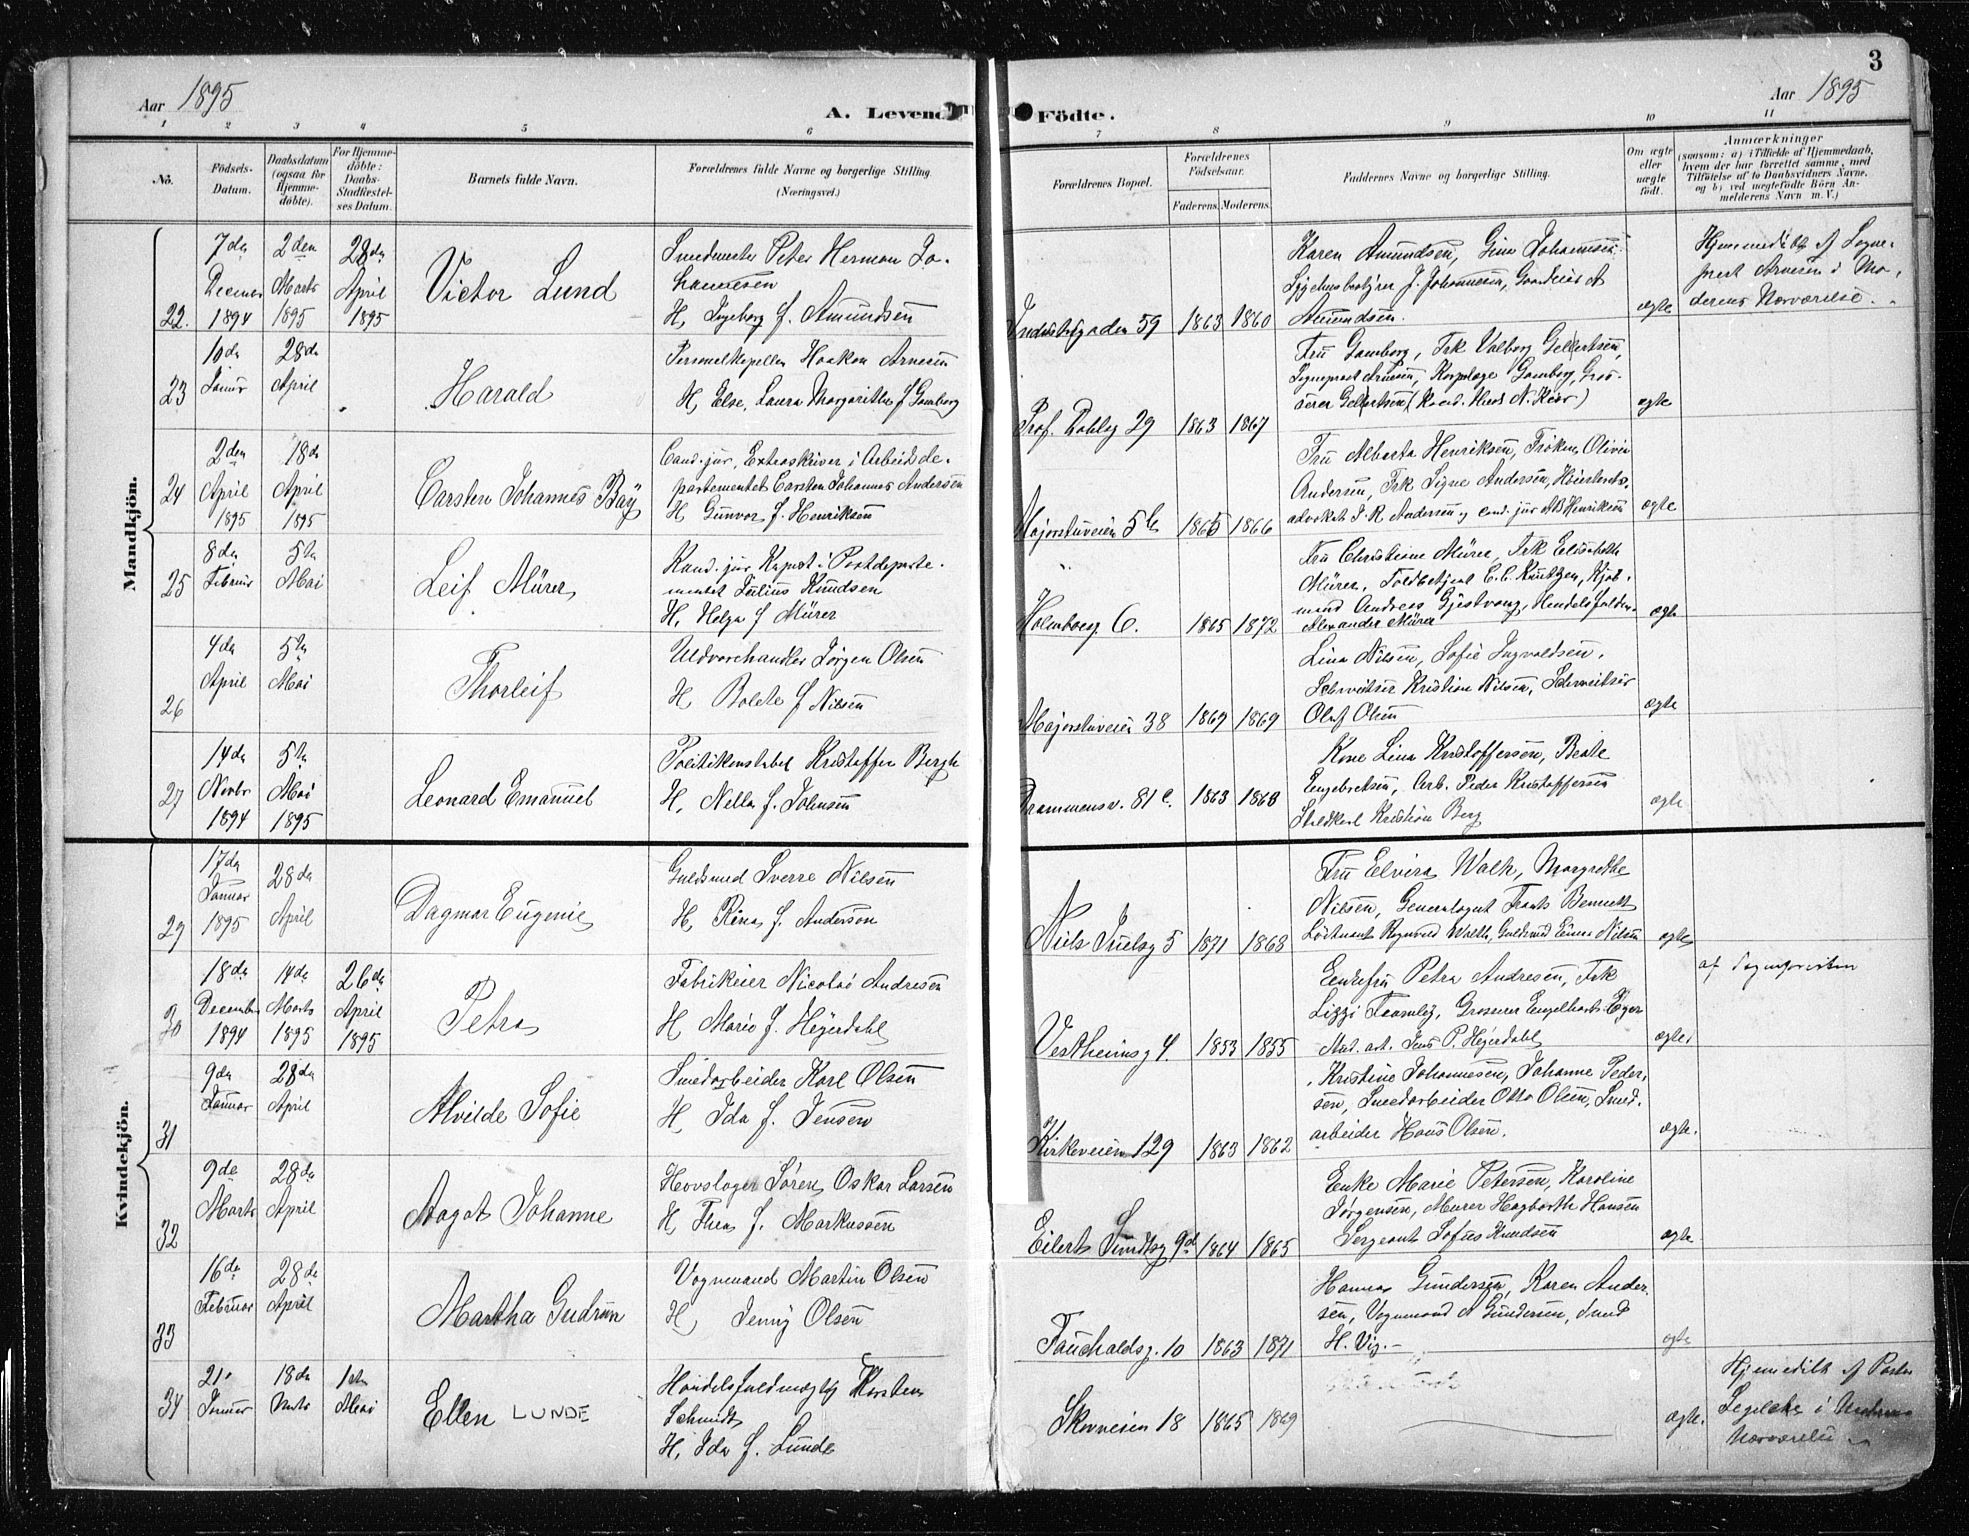 3
Aar 1895
Aar 1895
A. Levende Födte.
1 2 3 4 5 6 7 8 9 10 11
No.
Födsels-Datum.
Daabsdatum (ogsaa for Hjemme-döbte).
For Hjemme-döbte: Daabs-Stadfæstel-ses Datum.
Barnets fulde Navn.
Forældrenes fulde Navne og borgerlige Stilling.
(Næringsvei.)
Forældrenes Bopæl.
Forældrenes Födselsaar.
Faderens. Moderens.
Faddernes Navne og borgerlige Stilling.
Om ægte eller uægte födt.
Anmærkninger
(saasom: a) i Tilfælde af Hjemmedaab, hvem der har forrettet samme, med Tilföielse af to Daabsvidners Navne, og b) ved uægtefödte Börn An-melderens Navn m. V.)
Mandkjön.
22. 7de Decemer 1894
2den Marts 1895
28de April 1895
Victor Lund
Smedmester Peter Herman Jo-
hannesen
H, Ingeborg f. Amundsen
59 1863 1860
Karen Amundsen, Gina Johannesen
J. Johannesen,
Amundsen.
ægte
Hjemmedöbt af Sogne-
prest Arnesen i Mo-
derens Nærværelse.
23 10de Januar
28de April
Harald
Personelkapellan Haakon Arnesen
H, Else, Laura Margarethe f Gamborg
Prof. Dahlsg 29 1863 1867
Fru Gamborg, Frk Valborg Gellertsen,
Sogneprest Arnesen, Korpslæge Gamborg, Gros-
serer Gellertsen
ægte
24 2den April 1895
18de April 1895
Carsten Johannes Bay
Cand. jur, Extraskriver i Arbeidsde-
partementet Carsten Johannes Andersen
H Gunvor f. Henriksen
Majorstuveien 5b 1865 1866
Fru Alberta Henriksen, Frøken Olivia
Andersen, Frk Signe Andersen, Høiesterets-
advokat J. R. Andersen og cand. jur AB Henriksen
ægte
25 8de Februar
5te Mai
Leif Mürer
Kand. jur Kopist i Postdeparte-
mentet Julius Knudsen
H, Helga f Mürer
Holmboesg 6. 1865 1872
Fru Christiane Mürer, Frk Elisabeth
Mürer, Toldbetjent C. C. Knutzen, Kjøb-
mand Andreas Gjestvang, Handelsfuldm.
Alexander Mürer
ægte
26 4de April
5te Mai
Thorleif
Uldvarehandler Jørgen Olsen
H Bolette f Nilsen
Majorstuveien 38 1869 1869
Lina Nilsen, Sofie Ingvaldsen.
Schweitser Kristian Nilsen, Schweitser
Olaf Olsen
ægte
27 14de Novbr 1894
5te Mai 1895
Leonard Emanuel
Politikonstabel Kristoffer Bergh
H, Nella f. Johnsen
Drammensv. 81 c. 1863 1868
Kone Lina Kristoffersen, Beate
Engebretsen, Arb. Peder Kristoffersen
Staldkarl Kristian Berg
ægte
Kvindekjön.
29 17de Januar 1895
28de April
Dagmar Eugenie
Guldsmed Sverre Nilsen
H, Rina f. Anderson
Niels Juelsg 5 1871 1868
Fru Elvira Walth, Margrethe
Nilsen, Generalagent Frants Bennett
Løitnant Ragnvald Walth, Guldsmed Einar Nilsen
ægte
30 18de December 1894
14de Marts 1895
26de April 1895
Petra
Fabrikeier Nicolai Andresen
H Marie f. Heyerdahl
Vestheimsg 4. 1853 1855
Enkefru Petra Andresen, Frk
Lizzi Framley, Grosserer Engelhardt Eger
Stud. art. Jens P. Heyerdahl
ægte
af Sognepresten
31 9de Januar
28de April
Alvilde Sofie
Smedarbeider Karl Olsen
H Ida f. Jensen
Kirkeveien 129 1863 1862
Kristine Johannesen, Johanne Peder-
sen, Smedarbeider Otto Olsen, Smed-
arbeider Hans Olsen.
ægte.
32 9de Marts
28de April
Aagot Johanne
Hovslager Søren Oskar Larsen
H, Thea f. Markussen
Eilert Sundtsg 9d 1864 1865
Enke Marie Petersen, Karoline
Jørgensen, Murer Hagbarth Hansen
Sergeant Sofus Knudsen
ægte
33 16de Februar
28de April
Martha Gudrun
Vognmand Martin Olsen
H, Jenny Olsen
Fauchaldsg. 10 1863 1871
Hanna Gundersen, Karen Ander-
sen, Vognmand A Gundersen, Smed
H. Vig.
ægte
34 21. Januar
18de Marts
1ste Mai
Ellen LUNDE
Handelsfuldmægtig Karsten
Schmidt
H, Ida f. Lunde
Skovveien 18 1865 1869
ægte.
Hjemmedöbt af Pastor
Segelcke i Moderens
Nærværelse